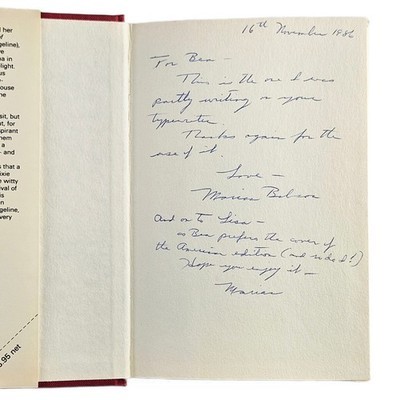 d her
of
geline),
ma in
light.
us
e-
ouse
he
sit, but
t, for
spirant
hem
a
- and
s that a
ixie
e witty
ival of
is
n
geline,
very
5.95 net
16th November 1986
For Bea -
This is the one I was
partly writing on your
typewriter.
Thanks again for the
use of it.
Love -
Marian Babson
And on to Lisa -
as Bea prefers the cover of
the American edition (and so do I!)
Hope you enjoy it -
Marian